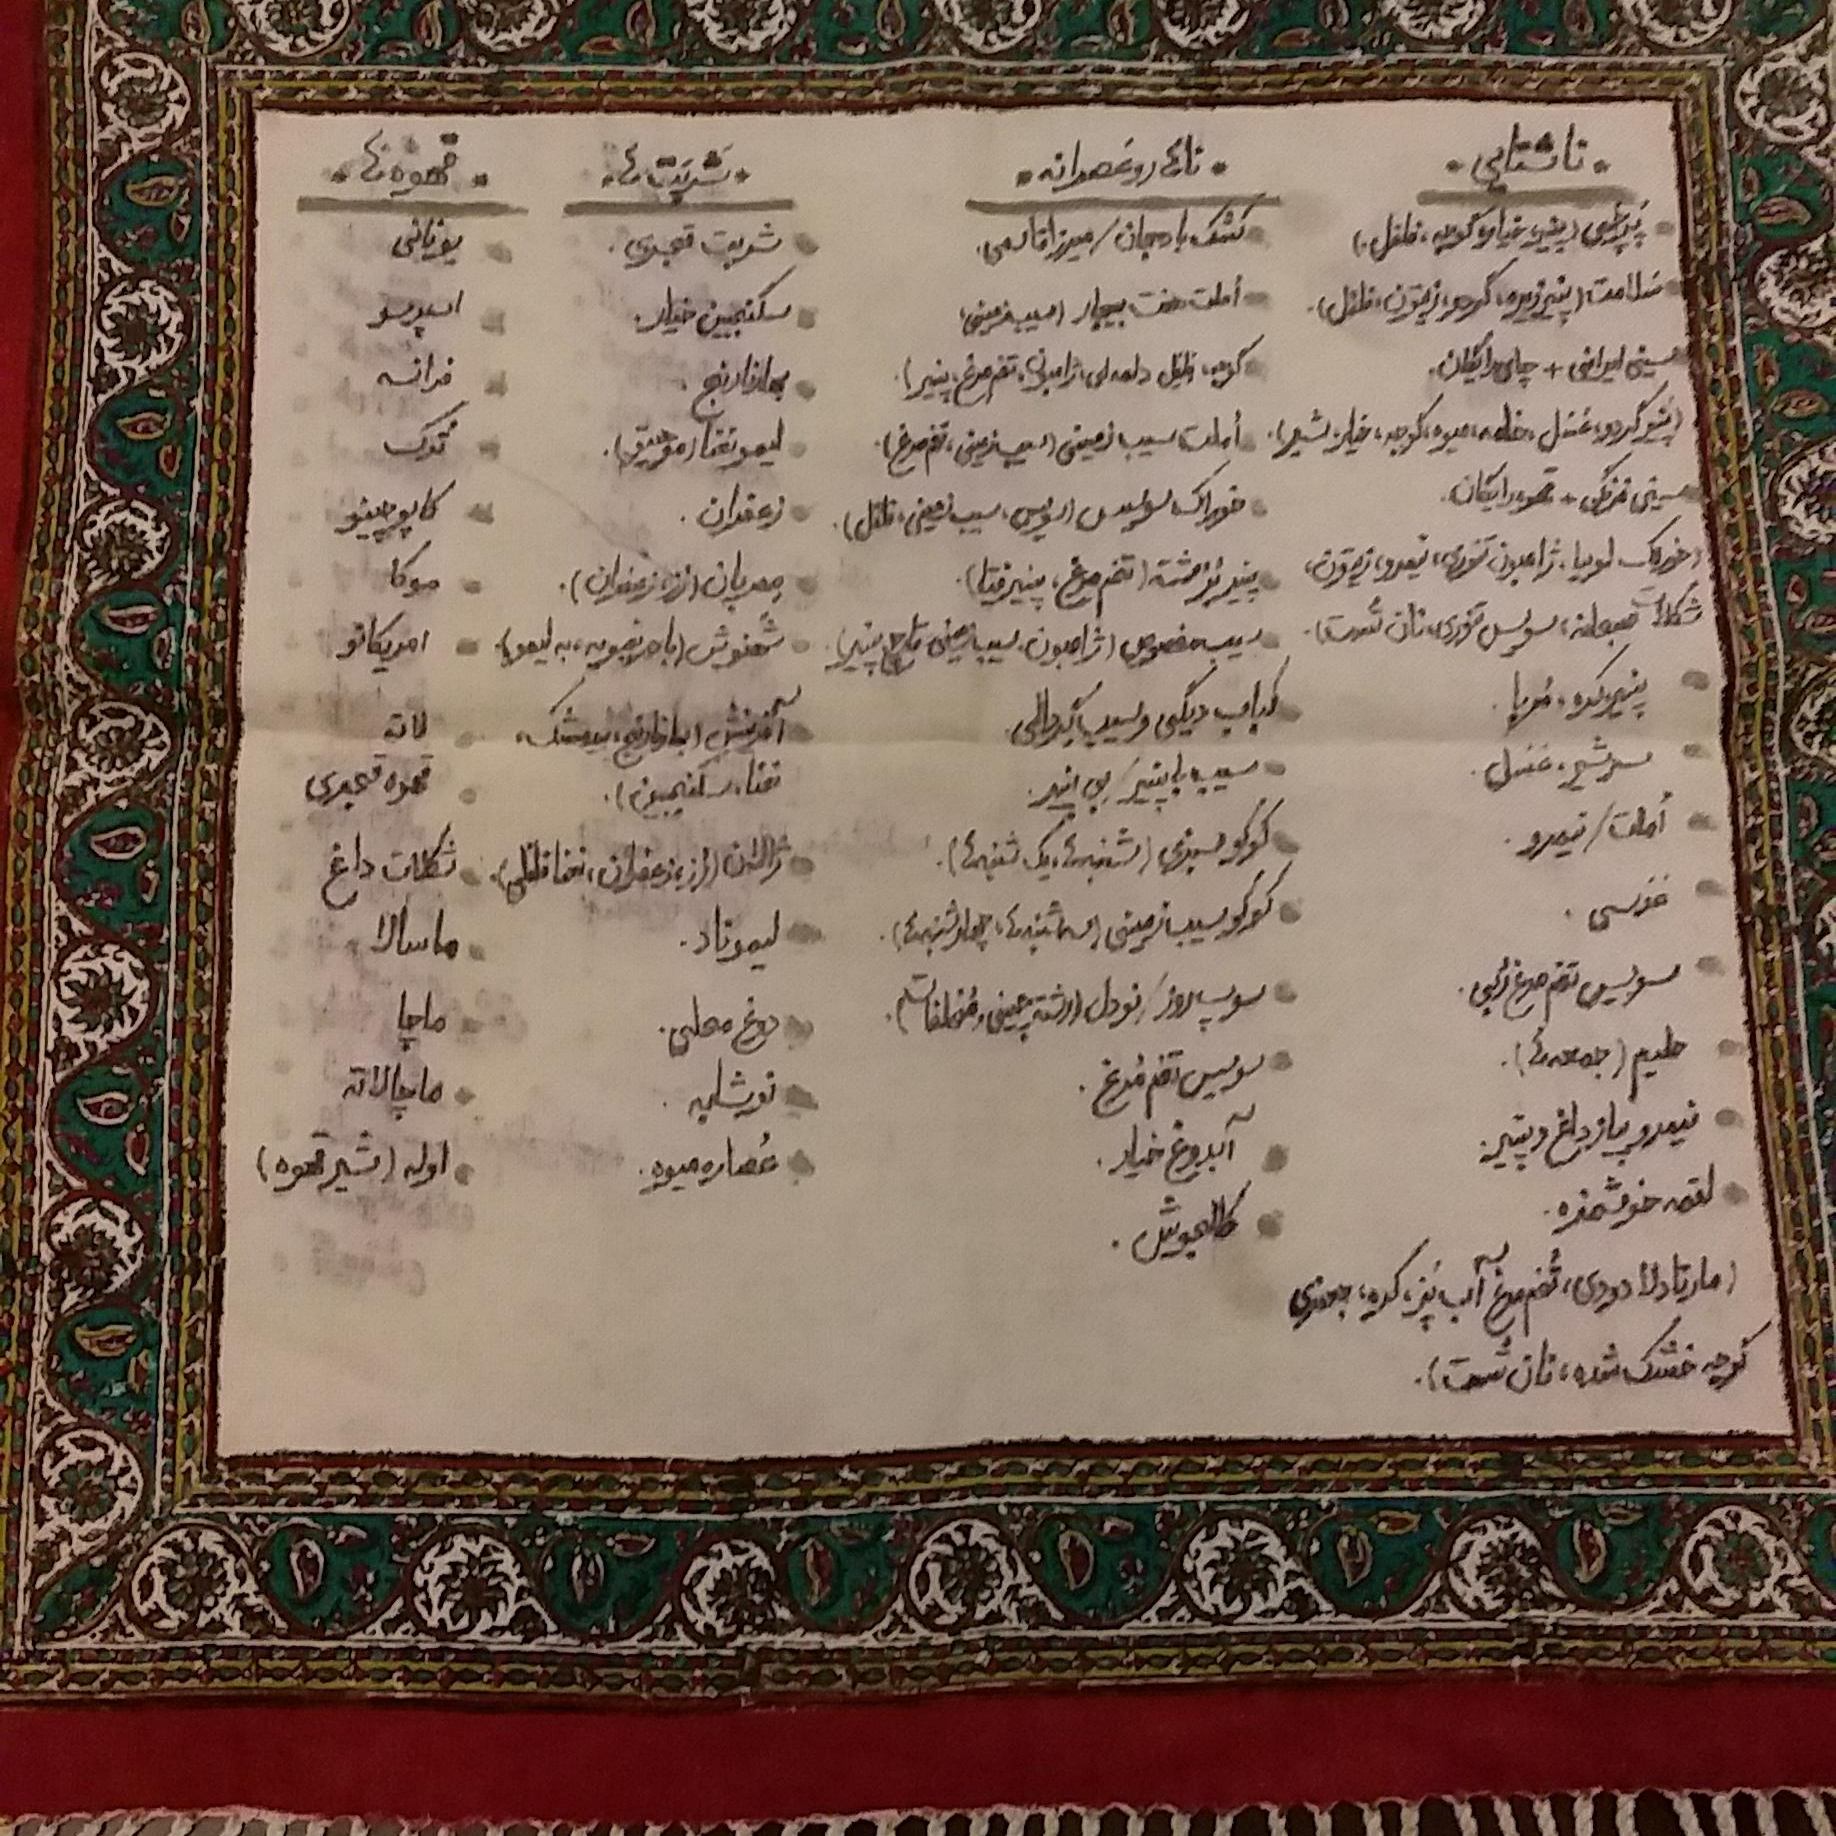 ناشتایی
پرطبی (پنیر، خیار، گوجه، فلفل.)
سلامت (پنیر زیره، گردو، زیتون، فلفل).
سینی ایرانی + چای رایگان.
(پنیر گردو، عسل، خامه، میوه، گوجه، خیار، شیر).
سینی فرنگی + قهوه رایگان.
(خوراک لوبیا، ژامبون تنوری، نیمرو، زیتون،
شکلات صبحانه، سوسیس تنوری، نان تُست).
پنیر، کره، مُربا.
سرشیر، عسل.
اُملت / نیمرو.
عدسی.
سوسیس تخم مرغ رُبی.
حلیم (جمعه ها).
نیمرو پیاز داغ و پنیر.
لقمه خوشمزه.
(مارتادلا دودی، تُخم مرغ آب پَز، کره، جعفری
گوجه خشک شده، نان تُست).
نان و عصرانه
کشک بادمجان / میرزاقاسمی.
اُملت هفت بیجار (سیب زمینی)
گوجه، فلفل دلمه ای، ژامبون، تخم مرغ، پنیر).
اُملت سیب زمینی (سیب زمینی، تخم مرغ).
خوراک سوسیس (سوسیس، سیب زمینی، فلفل).
پنیر برشته (تخم مرغ، پنیر فتا).
سیب مخصوص (ژامبون، سیب زمینی، قارچ، پنیر).
کباب دیگی و سیب کبابی.
سیب با پنیر / بی پنیر.
کوکو سبزی (شنبه ها، یک شنبه ها).
کوکو سیب زمینی (سه شنبه ها، چهارشنبه ها).
سوپ روز / نودل (رشته چینی و مُخلفات).
سوسیس تخم مُرغ.
آبدوغ خیار.
کالجوش.
شَربَت ها
شربت قجری.
سکنجبین خیار.
بهارنارنج.
لیمو نعنا (موهیتو).
زعفران.
مهربان (رُز، زعفران).
شَمنوش (بادرنجبویه، به لیمو).
آفرینش (بهارنارنج، بیدمشک،
نعنا، سکنجبین).
ژالان (رُز، زعفران، نعنا فلفلی).
لیموناد.
دوغ محلی.
نوشابه.
عُصاره میوه.
قهوه ها
یونانی
اسپرسو
فرانسه
تُرک
کاپوچینو
موکا
امریکانو
لاته
قهوه قجری
شکلات داغ
ماسالا
ماچا
ماچا لاته
اوله (شیر قهوه)